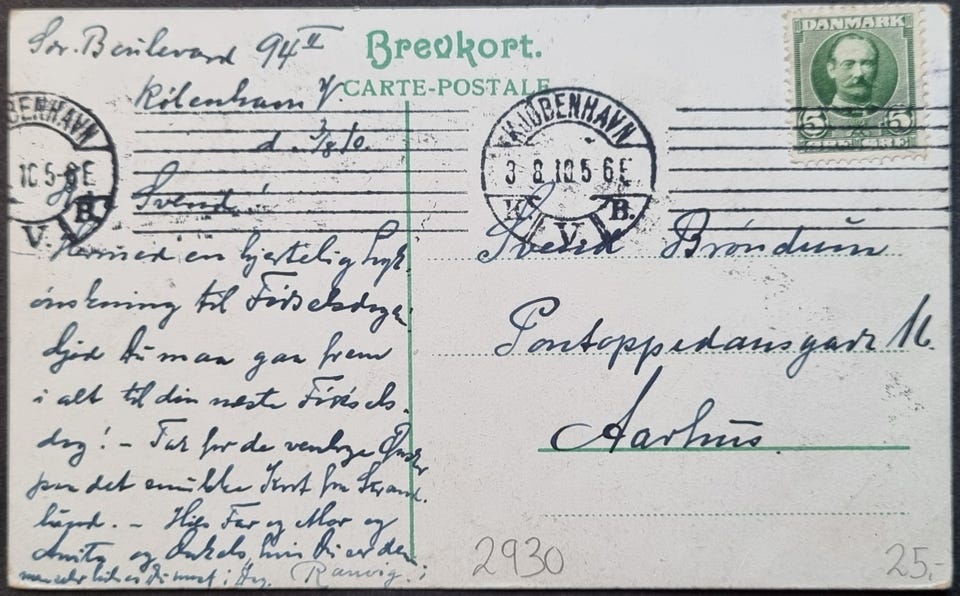 Brevkort.
CARTE-POSTALE
DANMARK
5 5
Boulevard 94 II
København V.
d. 3/8 10.
KJØBENHAVN
3 8 10 5 6 E
K. B.
V.
BENHAVN
10 5-6 E
B.
V.
Svend!
Hermed en hjertelig Lyk
ønskning til Fødselsdagen
Gid Du maa gaa frem
i alt til din næste Fødsels-
dag! - Tak for de venlige Ønsker
paa det smukke Kort fra Strand
- Hils Far og Mor og
Anita og Onkels,
Ranvig.
Svend Brøndum
Pontoppedansgade 16.
Aarhus
2930
25,-